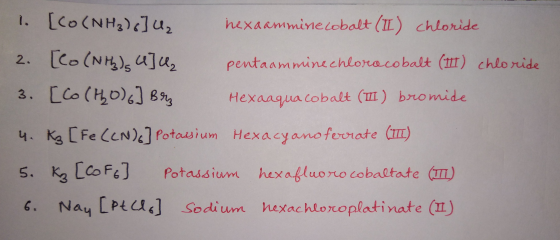 1. [Co(NH₃)₆]Cl₂ hexaamminecobalt (II) chloride
2. [Co(NH₃)₅Cl]Cl₂ pentaamminechlorocobalt (III) chloride
3. [Co(H₂O)₆]Br₃ Hexaaquacobalt (III) bromide
4. K₃[Fe(CN)₆] Potassium Hexacyanoferrate (III)
5. K₃[CoF₆] Potassium hexafluorocobaltate (III)
6. Na₄[PtCl₆] Sodium hexachloroplatinate (II)